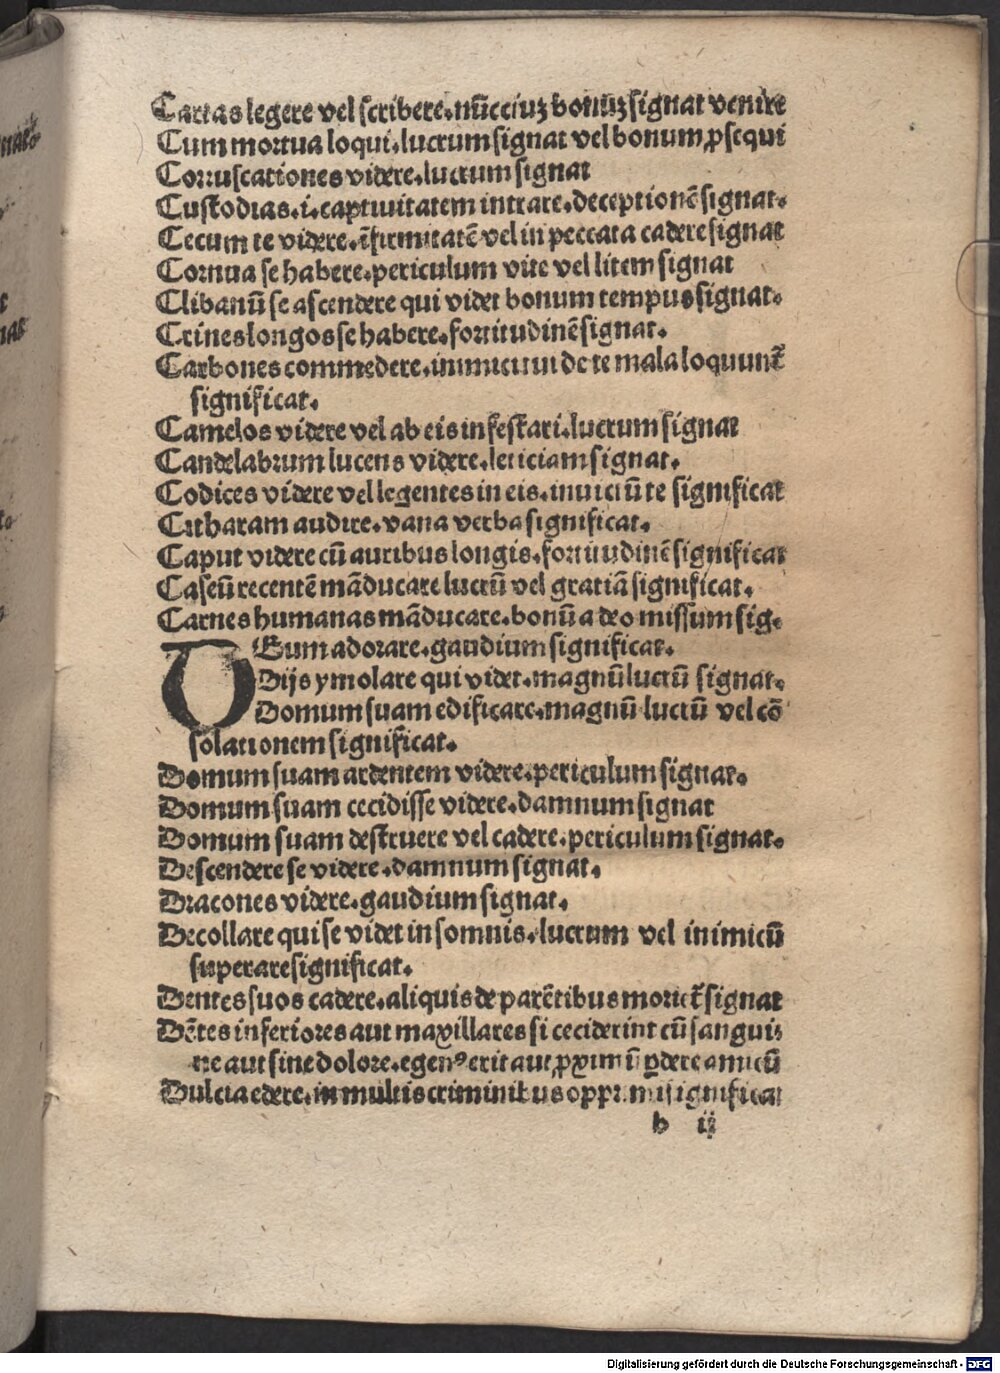 Cartas legere vel scribere.nūcciuꝫ bonūꝫ signat venire
Cum mortua loqui.lucrum signat vel bonum ꝓsequi
Corruscationes videre.lucrum signat
Custodias.i.captiuitatem intrare.deceptionē signat.
Cecum te videre.īfirmitatē vel in peccata cadere signat
Cornua se habere.periculum vite vel litem signat
Clibanū se ascendere qui videt bonum tempus signat.
Crines longos se habere.fortitudinē signat.
Carbones commedere.inimici tui de te mala loquunt᷑
significat.
Camelos videre vel ab eis infestari.lucrum signat
Candelabrum lucens videre.leticiam signat.
Codices videre vel legentes in eis.inuiciū te significat
Citharam audire.vana verba significat.
Caput videre cū auribus longis.fortitudinē significat
Caseū recentē māducare lucrū vel gratiā significat.
Carnes humanas māducare.bonū a deo missum sig.
DEum adorare.gaudium significat.
Dijs ymolare qui videt.magnū lucrū signat.
Domum suam edificare.magnū lucrū vel cō
solationem significat.
Domum suam ardentem videre.periculum signat.
Domum suam cecidisse videre.damnum signat
Domum suam destruere vel cadere.periculum signat.
Descendere se videre.damnum signat.
Dracones videre.gaudium signat.
Decollare qui se videt in somnis.lucrum vel inimicū
superare significat.
Dentes suos cadere.aliquis de parētibus moriet᷑ signat
Dētes inferiores aut maxillares si ceciderint cū sangui⸗
ne aut sine dolore.egenꝰ erit aut ꝓximū ꝑdere amicū
Dulcia edere.in multis criminibus opprimi significat
b ij
Digitalisierung gefördert durch die Deutsche Forschungsgemeinschaft - DFG